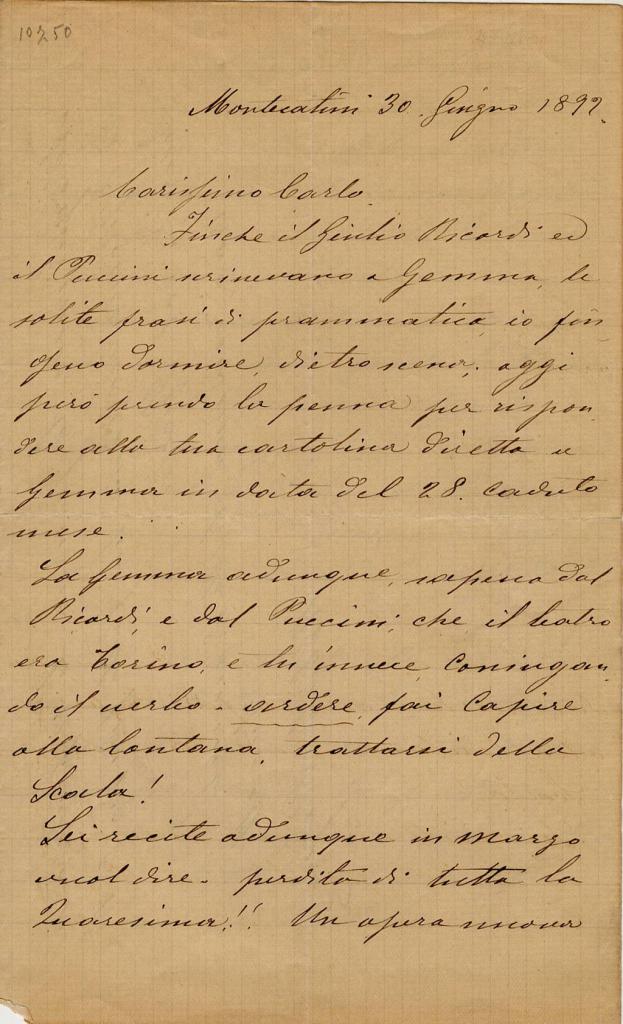 10250
Montecatini 30. Giugno 1892.
Carissimo Carlo
Finche il Giulio Ricordi ed
il Puccini scrivevano a Gemma, le
solite frasi di prammatica, io fin-
gevo dormire, dietro scena; oggi
però prendo la penna per rispon-
dere alla tua cartolina diretta a
Gemma in data del 28. caduto
mese.
La Gemma adunque, sapeva dal
Ricordi, e dal Puccini, che il teatro
era Torino, e tu invece, coniugan-
do il verbo - ardere, fai capire
alla lontana, trattarsi della
Scala!
Sei recite adunque in marzo
vuol dire - perdita di tutta la
Quaresima!! Un opera nuova